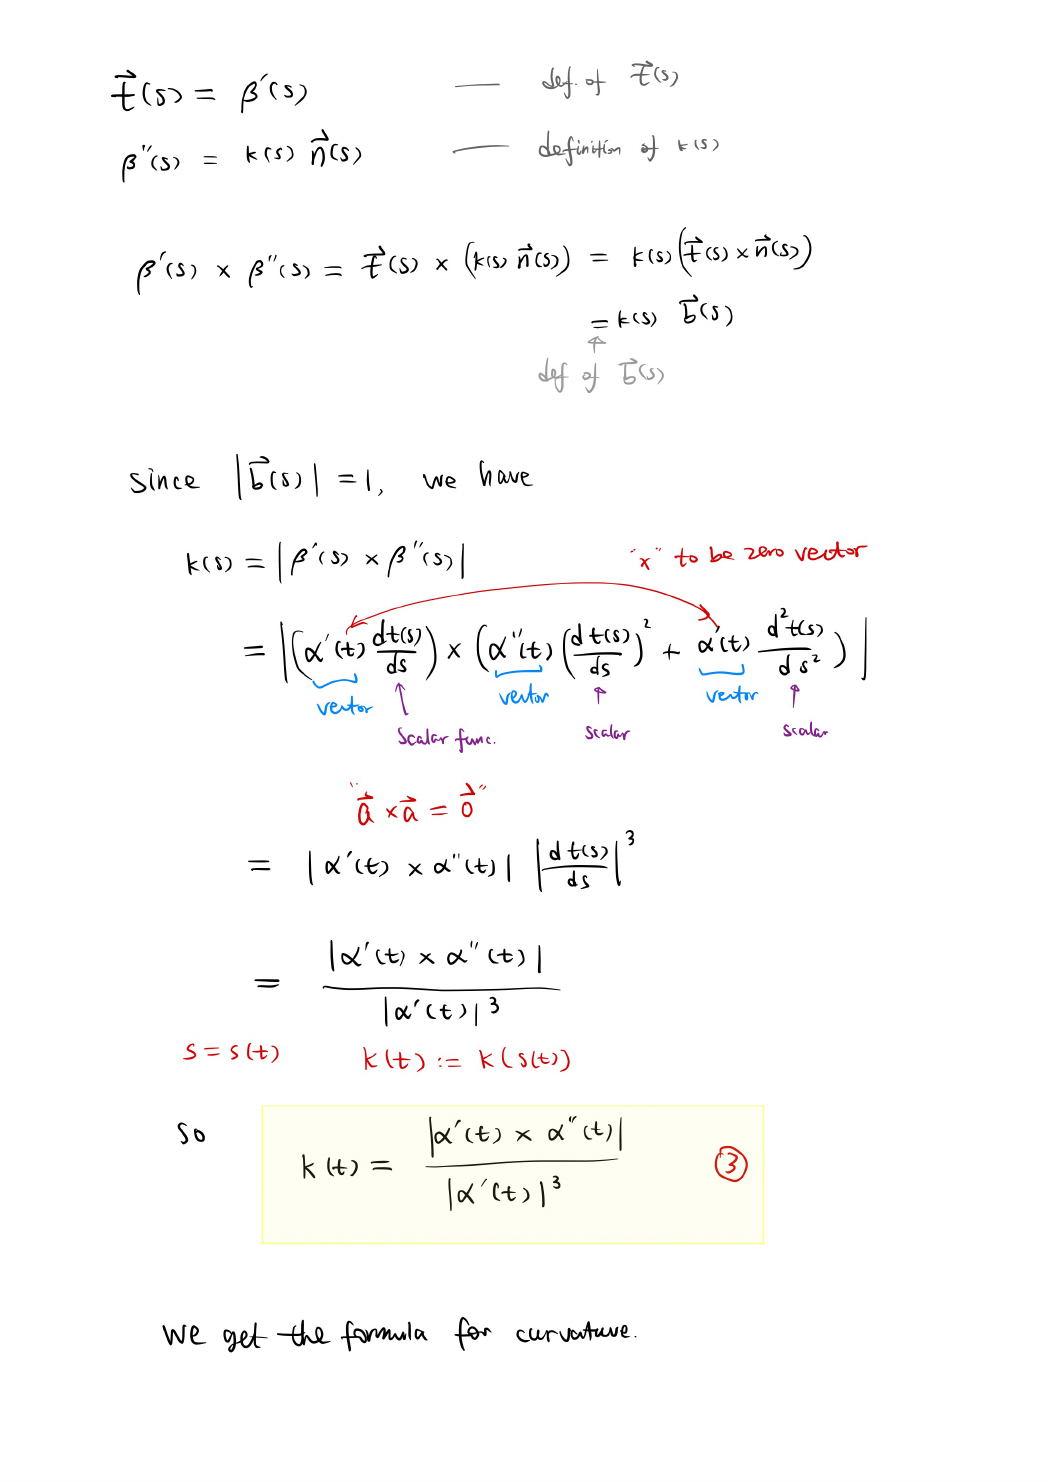 t⃗(s) = β'(s) — def. of t⃗(s)
β''(s) = k(s) n⃗(s) — definition of k(s)
β'(s) × β''(s) = t⃗(s) × (k(s) n⃗(s)) = k(s)(t⃗(s) × n⃗(s))
= k(s) b⃗(s)
↑
def of b⃗(s)
since |b⃗(s)| = 1, we have
k(s) = |β'(s) × β''(s)| "×" to be zero vector
= |(α'(t) dt(s)/ds) × (α''(t) (dt(s)/ds)² + α'(t) d²t(s)/ds²)|
vector vector vector
scalar func. scalar scalar
"a⃗ × a⃗ = 0⃗"
= |α'(t) × α''(t)| |dt(s)/ds|³
= |α'(t) × α''(t)| / |α'(t)|³
s = s(t) k(t) := k(s(t))
So k(t) = |α'(t) × α''(t)| / |α'(t)|³ ③
We get the formula for curvature.